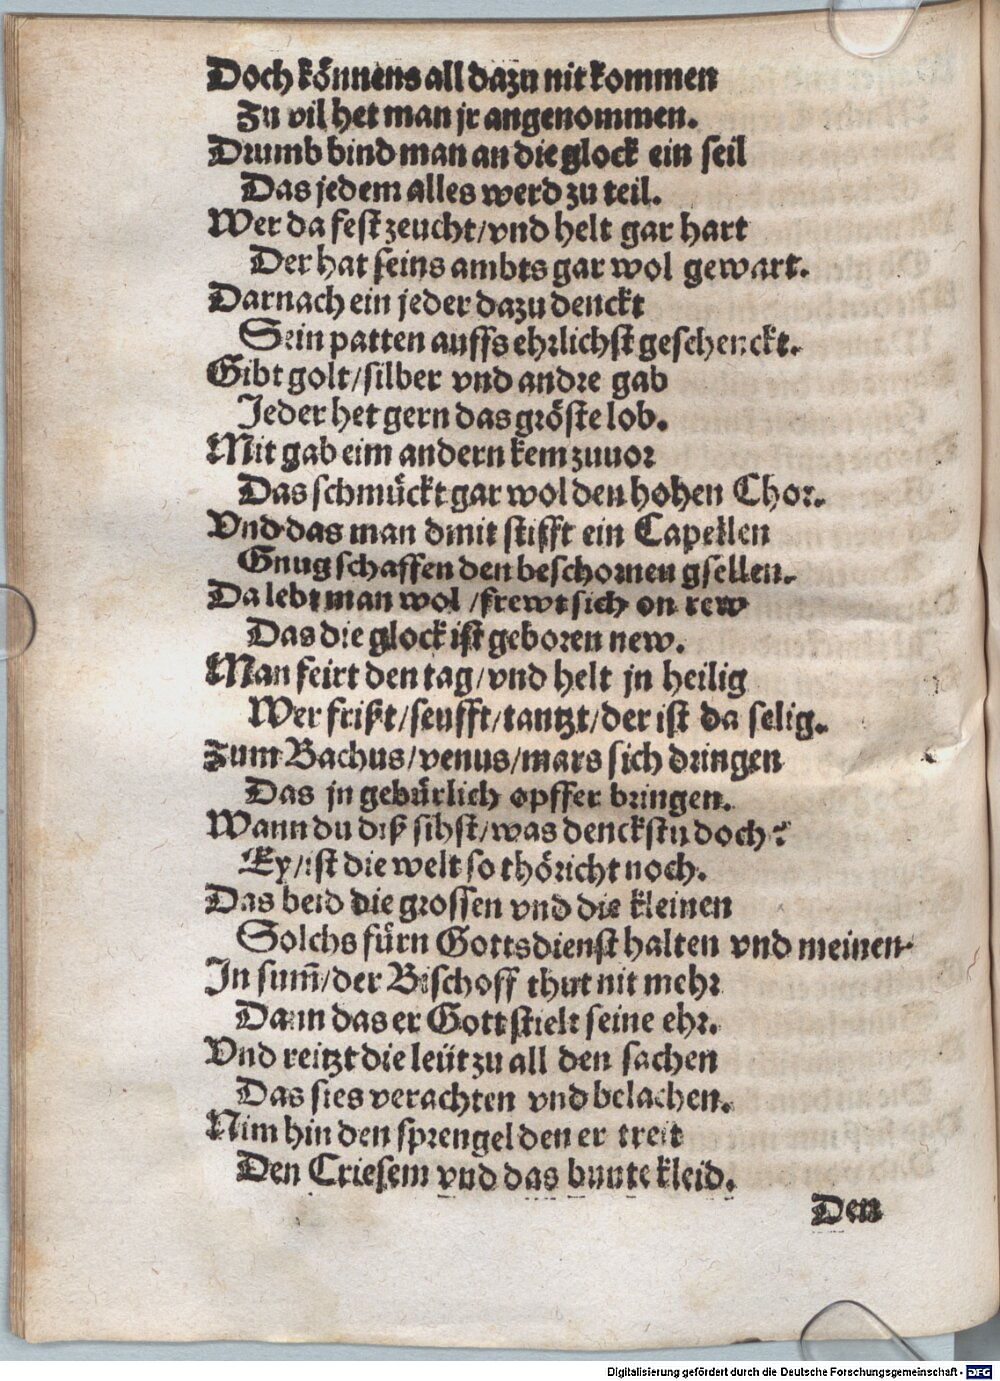 Doch könnens all dazu nit kommen
Zu vil het man jr angenommen.
Drumb bind man an die glock ein seil
Das jedem alles werd zu teil.
Wer da fest zeucht/vnd helt gar hart
Der hat seins ambts gar wol gewart.
Darnach ein jeder dazu denckt
Sein patten auffs ehrlichst geschenckt.
Gibt golt/silber vnd andre gab
Jeder het gern das gröste lob.
Mit gab eim andern kem zuuor
Das schmückt gar wol den hohen Chor.
Vnd das man dmit stifft ein Capellen
Gnug schaffen den beschornen gsellen.
Da lebt man wol /frewt sich on rew
Das die glock ist geboren new.
Man feirt den tag/vnd helt jn heilig
Wer frißt/seufft/tantzt/der ist da selig.
Zum Bachus/venus/mars sich dringen
Das jn gebürlich opffer bringen.
Wann du diß sihst/was denckstu doch?
Ey/ist die welt so thöricht noch.
Das beid die grossen vnd die kleinen
Solchs fürn Gottsdienst halten vnd meinen.
In sum̄/der Bischoff thut nit mehr
Dann das er Gott stielt seine ehr.
Vnd reitzt die leüt zu all den sachen
Das sies verachten vnd belachen.
Nim hin den sprengel den er treit
Den Criesem vnd das bunte kleid.
Den
Digitalisierung gefördert durch die Deutsche Forschungsgemeinschaft - DFG